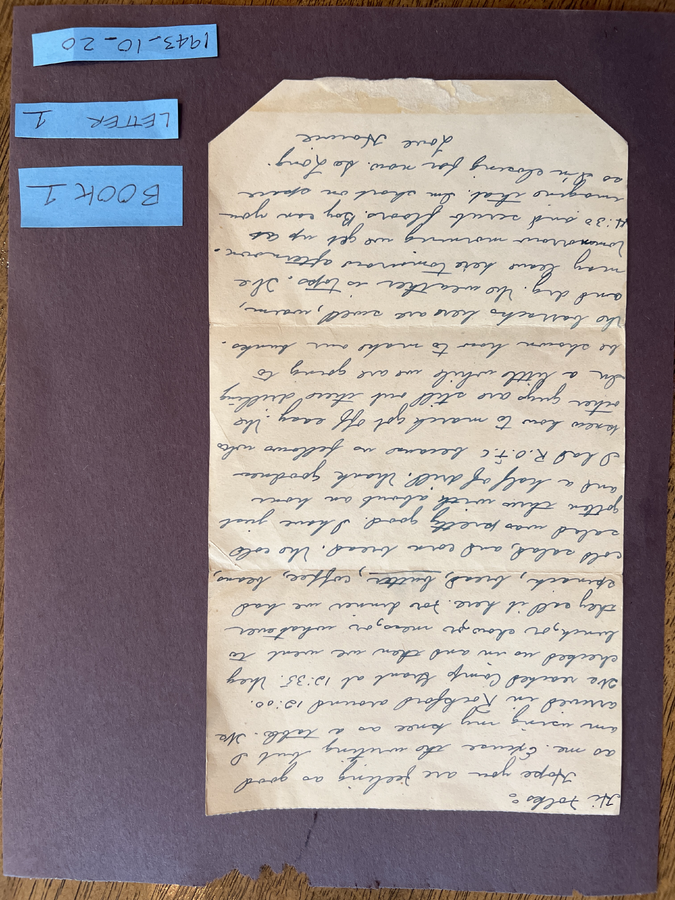 BOOK 1
LETTER 1
1943_10_20
Hi Folks:
Hope you are feeling as good
as me. Excuse the writing but I
am using my knee as a table. We
arrived in Rockford around 12:00.
We reached Camp Grant at 12:35. They
checked us in and then we went to
lunch, or chow, or mess, or whatever
they call it here. For dinner we had
spinach, bread, butter, coffee, beans,
cold salad, and corn bread. The cold
salad was pretty good. I have just
gotten thru with about an hour
and a half of drill. Thank goodness
I had R.O.T.C because us fellows who
knew how to march got off easy. The
other guys are still out there drilling
In a little while we are going to
be shown how to make our bunks.
The barracks here are swell, warm,
and dry. The weather is tops. We
may leave here tomorrow afternoon.
Tomorrow morning we get up at
4:30 and scrub floors. Boy can you
imagine that. I'm short on space
so I'm closing for now. So Long.
Love